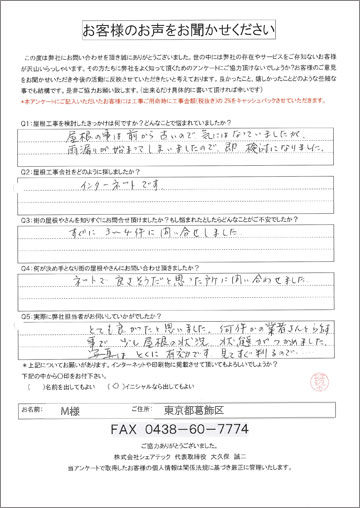 お客様のお声をお聞かせください
この度は弊社にお問い合わせを頂き誠にありがとうございます。世の中には弊社の存在やサービスをご存知ないお客様
が沢山いらっしゃいます。その方たちに弊社をよく知って頂くためのアンケートにご協力頂けないでしょうか?お客様のご意見
をお聞かせいただき今後の活動に反映させていただきたいと考えております。良かったこと、嬉しかったことどのような些細な
事でも結構です。是非ご協力お願い致します。(出来るだけ具体的に書いて頂ければ幸いです)
*本アンケートにご記入いただいたお客様には工事ご用命時に工事金額(税抜き)の2%をキャッシュバックさせていただきます。
Q1:屋根工事を検討したきっかけは何ですか?どんなことで悩まれていましたか?
屋根の事は前から古いので気にはなっていましたが、
雨漏りが始まってしまいましたので、即 検討になりました。
Q2:屋根工事会社をどのように探しましたか?
インターネットです
Q3:街の屋根やさんを知りすぐにお問合せ頂けましたか?もし悩まれたとしたらどんなことがご不安でしたか?
すぐに 3〜4件に問い合せしました
Q4:何が決め手となり街の屋根やさんにお問い合わせ頂きましたか?
ネットで 良さそうだと思った所に問い合わせました
Q5:実際に弊社担当者がお伺いしていかがでしたか?
とても良かったと思いました。何件かの業者さんと話す
事で 少し屋根の状況、状態がつかめました。
写真はとくに有効です 見てすぐ判るので。
*上記についてお願いがあります。インターネットや印刷物に掲載させて頂いてもよろしいでしょうか?
下記の中から〇印をお付け下さい。
( )名前を出してもよい (〇)イニシャルなら出してもよい
お名前: M様 ご住所: 東京都葛飾区
FAX 0438-60-7774
ご協力ありがとうございました。
株式会社シェアテック 代表取締役 大久保 誠二
当アンケートで取得したお客様の個人情報は関係法規に基づき厳正に管理いたします。